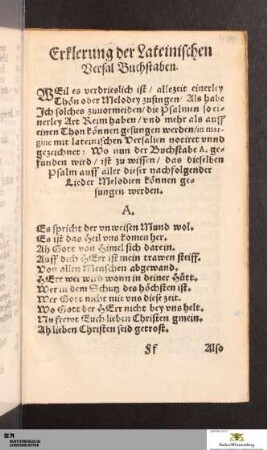 Erklerung der Lateinischen
Versal Buchstaben.
WEil es verdrieslich ist / allezeit einerley
Thon oder Melodey zusingen / Als habe
Ich solches zuuormeiden / die Psalmen so ei-
nerley Art Reim haben / vnd mehr als auff
einen Thon können gesungen werden / in mar-
gine mit lateinischen Versalien notiret vnnd
gezeichnet: Wo nun der Buchstabe A. ge-
funden wird / ist zu wissen / das dieselben
Psalm auff aller dieser nachfolgender
Lieder Melodien können ge-
sungen werden.
A.
Es spricht der vnweisen Mund wol.
Es ist das Heil vns komen her.
Ah Gott von Himel sich darein.
Auff dich HErr ist mein trawen steiff.
Von allen Menschen abgewand.
HErr wer wird wonn in deiner Hütt.
Wer in dem Schutz des höchsten ist.
Wer Gott nicht mit vns diese zeit.
Wo Gott der HErr nicht bey vns helt.
Nu frewt Euch lieben Christen gmein.
Ah lieben Christen seid getrost.
Ff Also
BLB
Baden-Württemberg